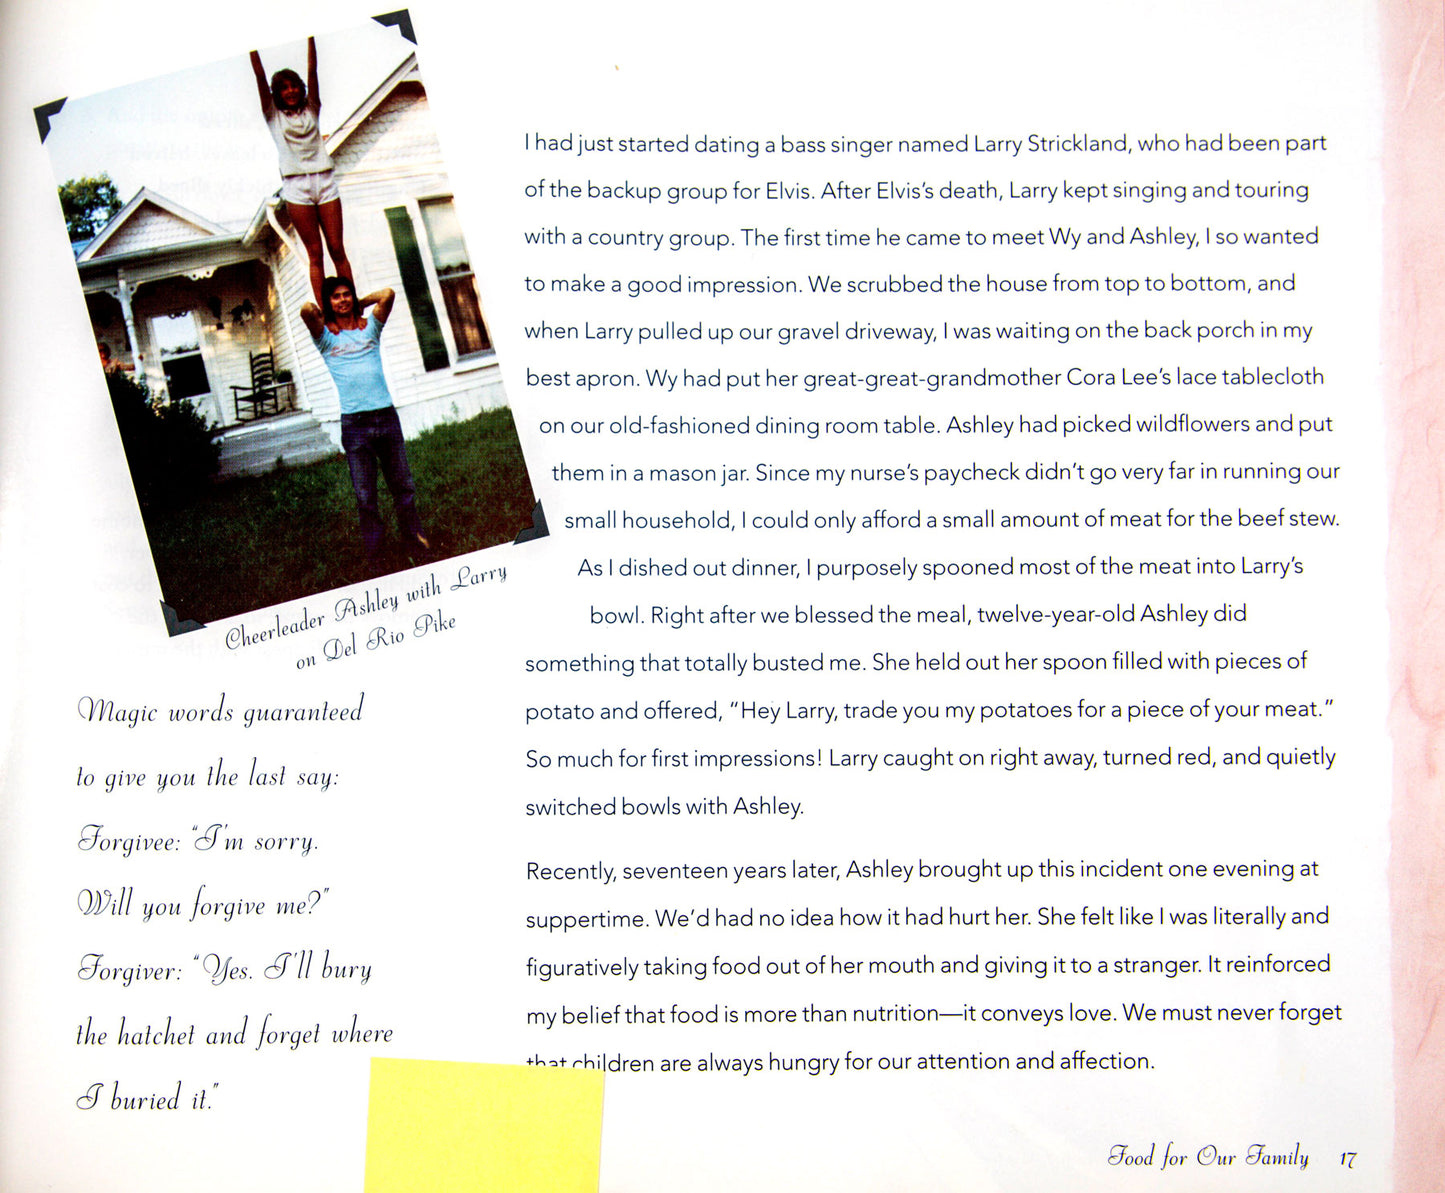 Cheerleader Ashley with Larry
on Del Rio Pike
Magic words guaranteed
to give you the last say:
Forgivee: "I'm sorry.
Will you forgive me?"
Forgiver: "Yes. I'll bury
the hatchet and forget where
I buried it."
I had just started dating a bass singer named Larry Strickland, who had been part
of the backup group for Elvis. After Elvis's death, Larry kept singing and touring
with a country group. The first time he came to meet Wy and Ashley, I so wanted
to make a good impression. We scrubbed the house from top to bottom, and
when Larry pulled up our gravel driveway, I was waiting on the back porch in my
best apron. Wy had put her great-great-grandmother Cora Lee's lace tablecloth
on our old-fashioned dining room table. Ashley had picked wildflowers and put
them in a mason jar. Since my nurse's paycheck didn't go very far in running our
small household, I could only afford a small amount of meat for the beef stew.
As I dished out dinner, I purposely spooned most of the meat into Larry's
bowl. Right after we blessed the meal, twelve-year-old Ashley did
something that totally busted me. She held out her spoon filled with pieces of
potato and offered, "Hey Larry, trade you my potatoes for a piece of your meat."
So much for first impressions! Larry caught on right away, turned red, and quietly
switched bowls with Ashley.
Recently, seventeen years later, Ashley brought up this incident one evening at
suppertime. We'd had no idea how it had hurt her. She felt like I was literally and
figuratively taking food out of her mouth and giving it to a stranger. It reinforced
my belief that food is more than nutrition—it conveys love. We must never forget
that children are always hungry for our attention and affection.
Food for Our Family 17